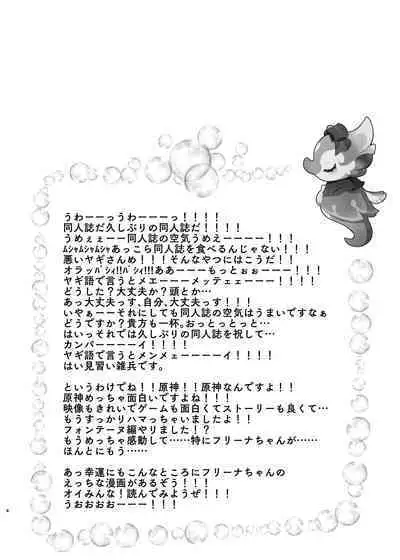 うわーーっうわーーーっ！！！！
同人誌だ久しぶりの同人誌だ！！！！
うめぇぇーー同人誌の空気うめえーーーー！！！
ﾑｼｬﾑｼｬﾑｼｬあっこら同人誌を食べるんじゃない！！！
悪いヤギさんめ！！！そんなやつにはこうだ！！
オラッﾊﾞｼィ!!ﾊﾞｼィ!!!ああーーーもっとぉぉーーー！！！
ヤギ語で言うとメエーーーメッテェェーーー！！！！
どうした？大丈夫か？頭とか…
あっ大丈夫っす、自分、大丈夫っす！！
いやぁーーそれにしても同人誌の空気はうまいですなぁ
どうですか？貴方も一杯。おっとっとっと…
はいっそれでは久しぶりの同人誌を祝して…
カンパーーーーイ！！！！
ヤギ語で言うとメンメェーーーーイ！！！！
はい見習い雑兵です。
というわけでね！！原神！！原神なんですよ！！
原神めっちゃ面白いですよね！！！
映像もきれいでゲームも面白くてストーリーも良くて…
もうすっかりハマっちゃいましたよ！！
フォンテーヌ編やりました！？
もうめっちゃ感動して……特にフリーナちゃんが……
ほんとにもう……
あっ幸運にもこんなところにフリーナちゃんの
えっちな漫画があるぞう！！！
オイみんな！読んでみようぜ！！！
うおおおおーーー！！！